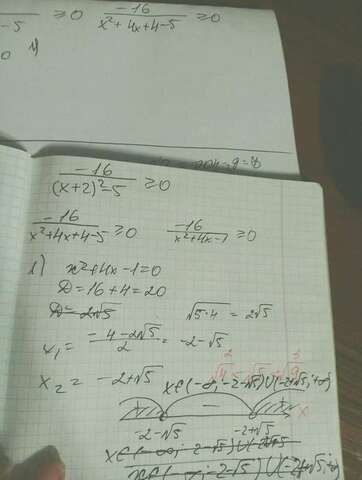 -5 ≥ 0   -16/(x²+4x+4-5) ≥ 0
0 1)
-16/((x+2)²-5) ≥ 0
-16/(x²+4x+4-5) ≥ 0   -16/(x²+4x-1) ≥ 0
1) x²+4x-1=0
D = 16+4=20
D = 2√5   √5·4 = 2√5
x₁ = (-4-2√5)/2 = -2-√5
x₂ = -2+√5   x∈(-∞; -2-√5)∪(-2+√5; +∞)
+ - + x
-2-√5   -2+√5
x∈(-∞; -2-√5)∪(-2+√5
x∈(-∞; -2-√5)∪(-2+√5; +∞)